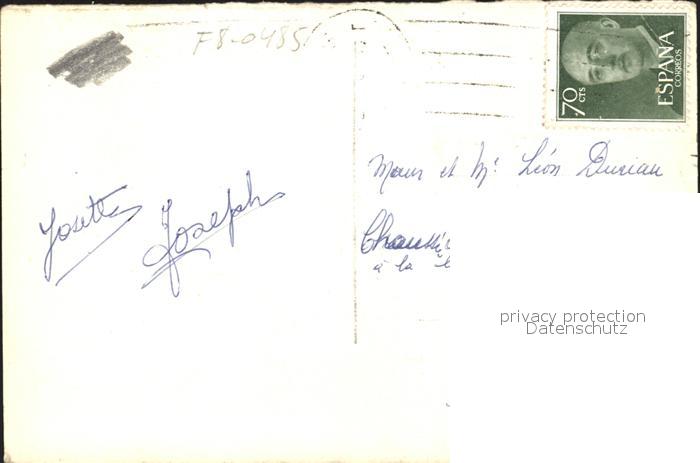 F8-0485
70 CTS
ESPAÑA
CORREOS
Josette
Joseph
et Mᵉ Léon
à la
privacy protection
Datenschutz